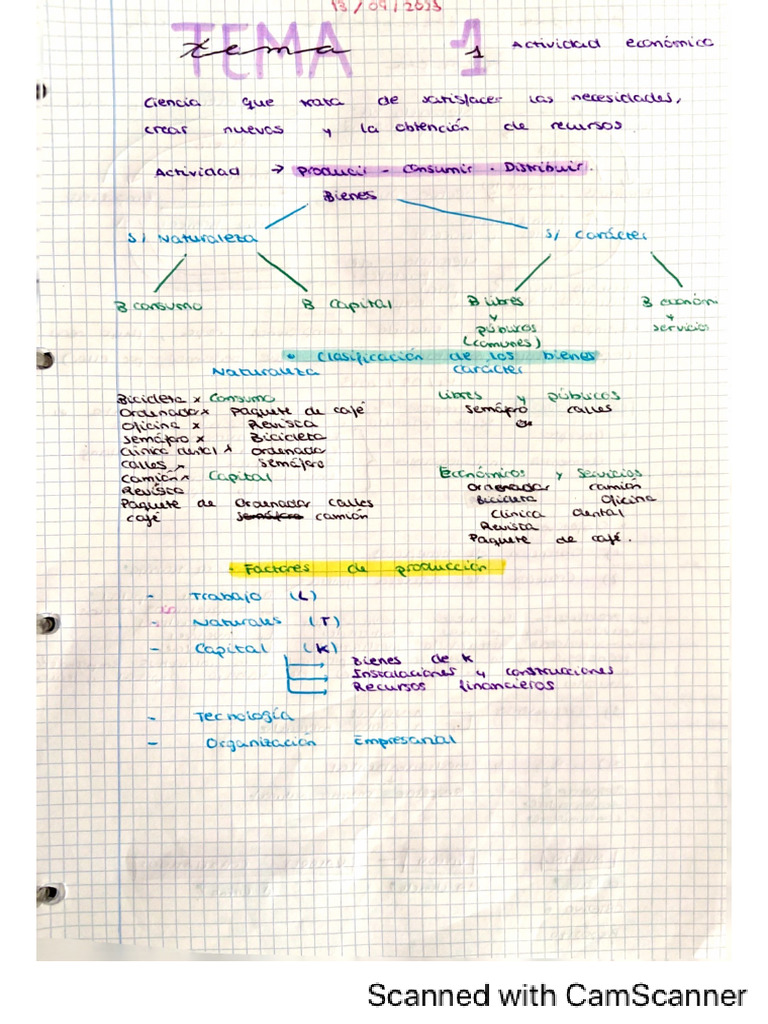 13/09/2023
TEMA 1
tema 1 Actividad económica
Ciencia que trata de satisfacer las necesidades,
crear nuevos y la obtención de recursos.
Actividad → Producir - Consumir - Distribuir.
Bienes
S/ Naturaleza S/ Carácter
B consumo B Capital B Libres y públicos (comunes) B económ y servicios
• Clasificación de los bienes
Naturaleza carácter
Bicicleta x Consumo
Ordenador x Paquete de café
Oficina x Revista
Semáfro x Bicicleta
Clínica dental x ordenador
calles x semáfro
camión x Capital
Revista
Paquete de Ordenador calles
café semáforo camión
Libres y públicos
semáfro calles
Económicos y Servicios
Ordenador camión
Bicicleta Oficina
Clínica dental
Revista
Paquete de café.
- Factores de producción
- Trabajo (L)
- Naturales (T)
- Capital (K)
Bienes de K
Instalaciones y construcciones
Recursos financieros
- Tecnología
- Organización Empresarial
Scanned with CamScanner